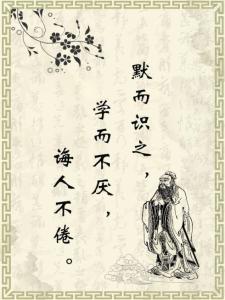 默而识之，
学而不厌，
诲人不倦。